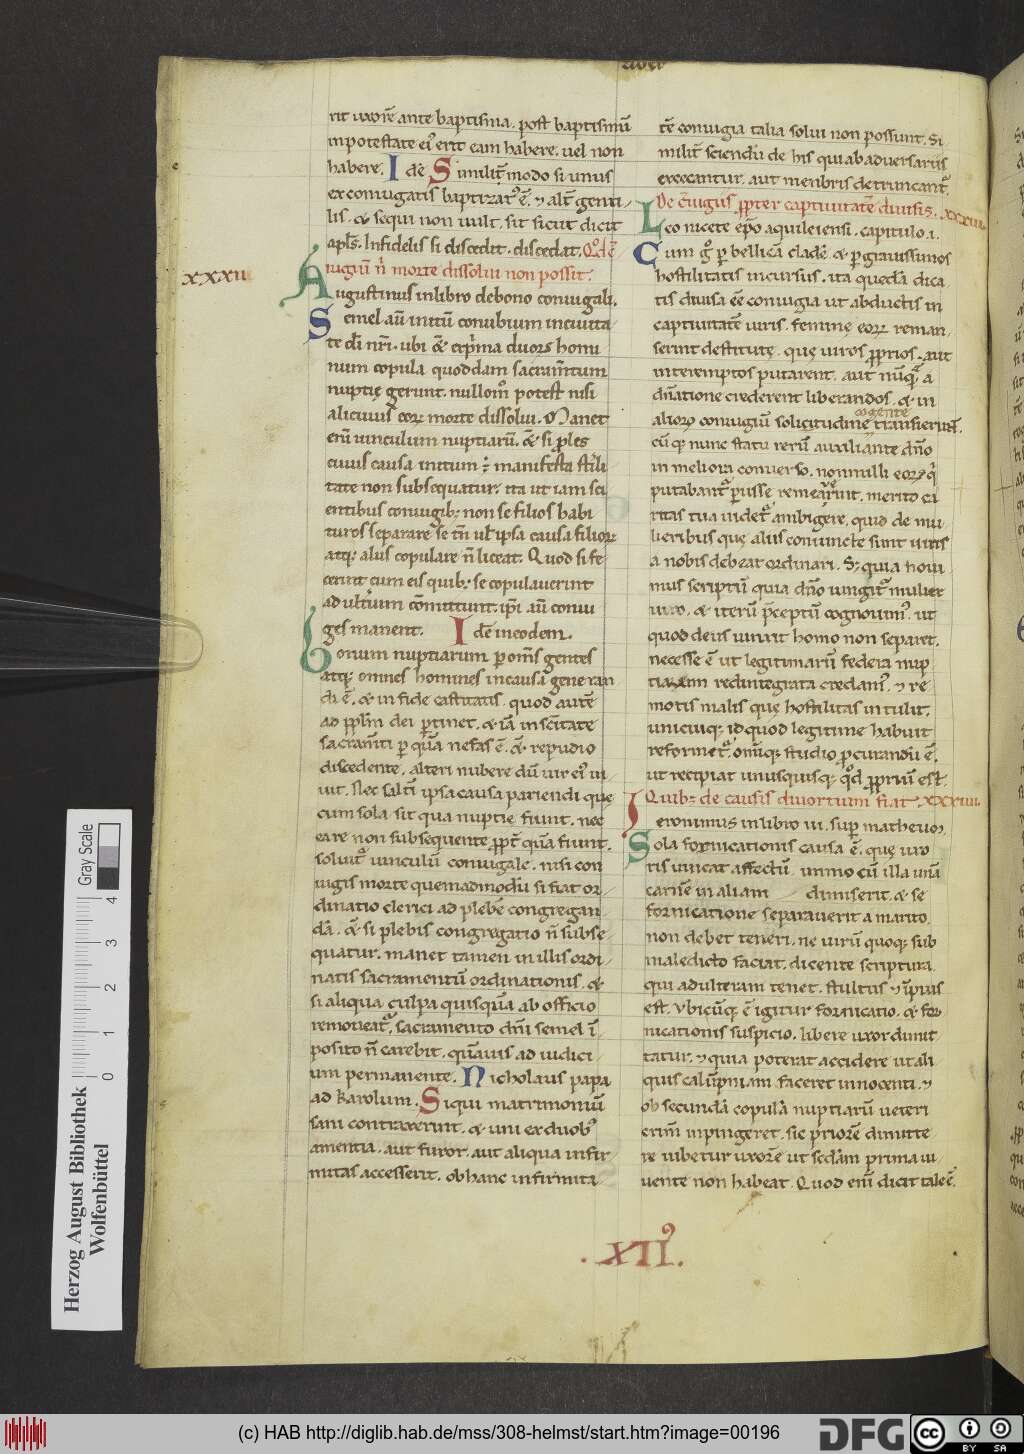 rit uxorē ante baptisma. post baptismū
in potestate ei᾽ erit eam habere. uel non
habere. I dē Similit̄ modo si unus
ex coniugatis baptizat᾽ ē. ⁊ alt̄ genti-
lis. & sequi non uult. sit sicut dicit
apl̄s. Infidelis si discedit. discedat. Qđ cō
iugiū n̄ morte dissolui non possit.
XXXII
Augustinus in libro de bono coniugali.
Semel aū initū conubium in ciuita-
te dī nr̄i. ubi & ex p̄ma duorꝝ homi
num copula quoddam sacram̄tum
nuptię gerunt. nullom̊ potest nisi
alicuius eorꝝ morte dissolui. Manet
enī uinculum nuptiarū. & si ꝓles
cuius causa initum ÷ manifesta steri-
tate non subsequatur. ita ut iam sci-
entibus coniugib; non se filios habi
turos separare se tn̄ ul ipsa causa filiorꝝ
atq; aliis copulare n̄ liceat. Quod si fe-
cerint cum eis quib; se copulauerint
adulterium cōmittunt. ip̄i aū coniu
ges manent. I dē in eodem.
Bonum nuptiarum ꝑ om̄s gentes
atq; omnes homines in causa generan
di ē. & in fide castitatis. quod autē
ad ppl̄m dei ꝑtinet. & iā in scītate
sacram̄ti ꝑ quā nefas ē. & repudio
discedente. alteri nubere dū uir ei᾽ ui-
uit. Nec saltī ipsa causa pariendi que
cum sola sit qua nuptie fiunt. nec
ea re non subsequente ꝓpt̄ quā fiunt.
soluit᾽ uinculū coniugale. nisi con
iugis morte quemadmodū si fiat or-
dinatio clerici ad plebē congregan
dā. & si plebis congregatio n̄ subse-
quatur. manet tamen in illis ordi-
natis sacramentū ordinationis. &
si aliqua culpa quisquā ab officio
remoueat᾽. sacramento dn̄i semel ī-
posito n̄ carebit. quāuis ad iudici-
um permanente. Nicholaus papa
ad Karolum. Siqui matrimoniū
sani contraxerint. & uni ex duob᾽
amentia. aut furor. aut aliqua infir-
mitas accesserit. ob hanc infirmita-
tē coniugia talia solui non possunt. Si
milit̄ sciendū de his qui ab aduersariis
excecantur. aut menbris detruncant᾽.
De cōiugiis ꝓpter captiuitatē diuisis. XXXIII
Leo nicete ep̄o aquileiensi. capitulo .i.
Cum g̊ ꝑ bellicā cladē. & ꝑ grauissimos
hostilitatis incursus. ita quedā dica
tis diuisa eē coniugia ut abductis in
captiuitatē uiris. femine eorꝝ reman-
serint destitutę. que uiros ꝓprios. aut
interemptos putarent. aut nūquā a
dn̄atione crederent liberandos. & in
aliorꝝ coniugiū solicitudine cogente transierint.
cū q; nunc statu rerū auxiliante dn̄o
in meliora conuerso. nonnulli eorꝝ q̇
putabant᾽ ꝑisse remearunt. merito ca
ritas tua uidet᾽ ambigere. quid de mu
lieribus que aliis coniuncte sunt uiris
a nobis debeat ordinari. S; quia noui
mus scriptū quia a dn̄o iungit᾽ mulier
uiro. & iterū p̄ceptū cognouim᾽. ut
quod deus iunxit homo non separet.
necesse ē ut legitimarū federa nup
tiarum redintegrata credam᾽. ⁊ re-
motis malis que hostilitas intulit.
unicuiq; id quod legitime habuit
reformet᾽. omīq; studio ꝓcurandū ē.
ut recipiat unusquisq; qđ ꝓpriū est.
Quib; de causis diuortium fiat XXXIIII.
Ieronimus in libro iii. sup matheum.
Sola fornicationis causa ē. que uxo
ris uincat affectū. immo cū illa unā
carnē in aliam dimiserit. & se
fornicatione separauerit a marito.
non debet teneri. ne uirū quoq; sub
maledicto faciat. dicente scriptura.
qui adulteram tenet. stultus ⁊ īpius
est. Vbicūq; ē igitur fornicatio. & for
nicationis suspicio. libere uxor dimit
tatur. ⁊ quia poterat accidere ut ali
quis calūpniam faceret innocenti. ⁊
ob secundā copulā nuptiarū ueteri
crim̄ inpingeret. sic priorē dimitte
re iubetur uxorē ut sc̄dam prima ui-
uente non habeat. Quod enī dicit tale ē.
.XII᾽.
Gray Scale
0 1 2 3 4
Herzog August Bibliothek
Wolfenbüttel
(c) HAB http://diglib.hab.de/mss/308-helmst/start.htm?image=00196
DFG
cc
BY SA